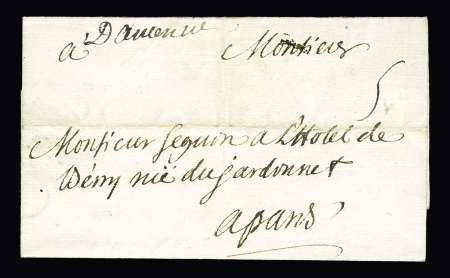 à Dauenne Monsieur
5
Monsieur Seguin a L'Hotel de
Berry rüe du jardonnet
a paris